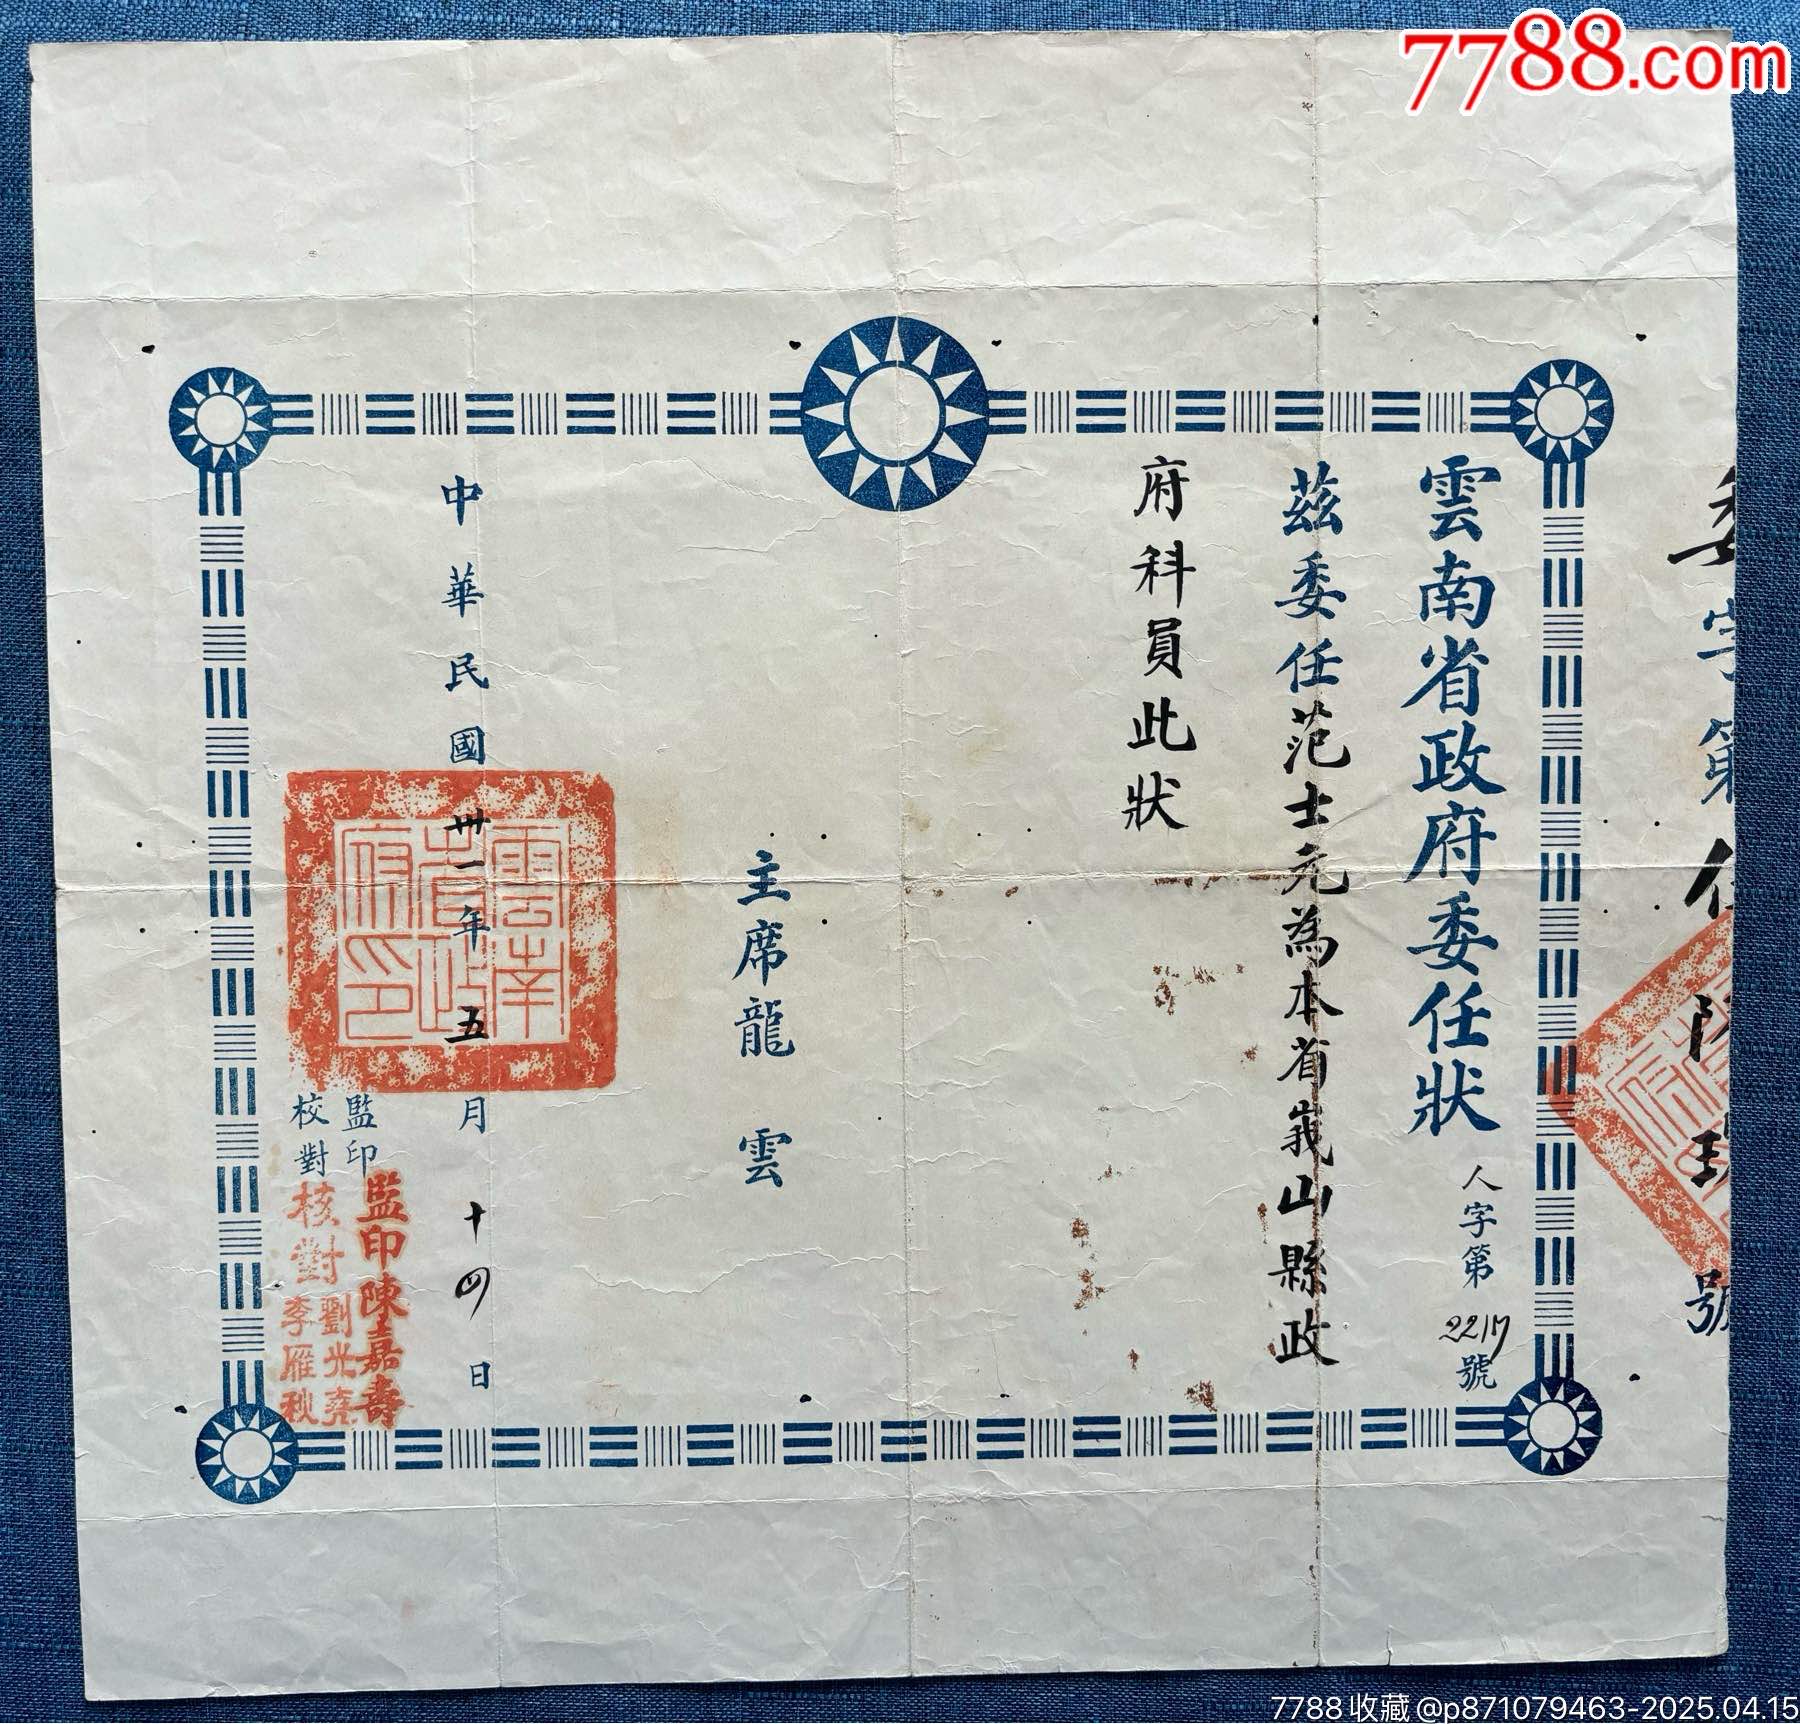 7788.com
委字第
號
雲南省政府委任狀
人字第2217號
茲委任范士元為本省峩山縣政
府科員此狀
主席龍雲
中華民國卅一年五月十四日
雲南省政府印
監印
監印陳嘉壽
校對
核對劉光堯
李雁秋
7788收藏@p871079463-2025.04.15